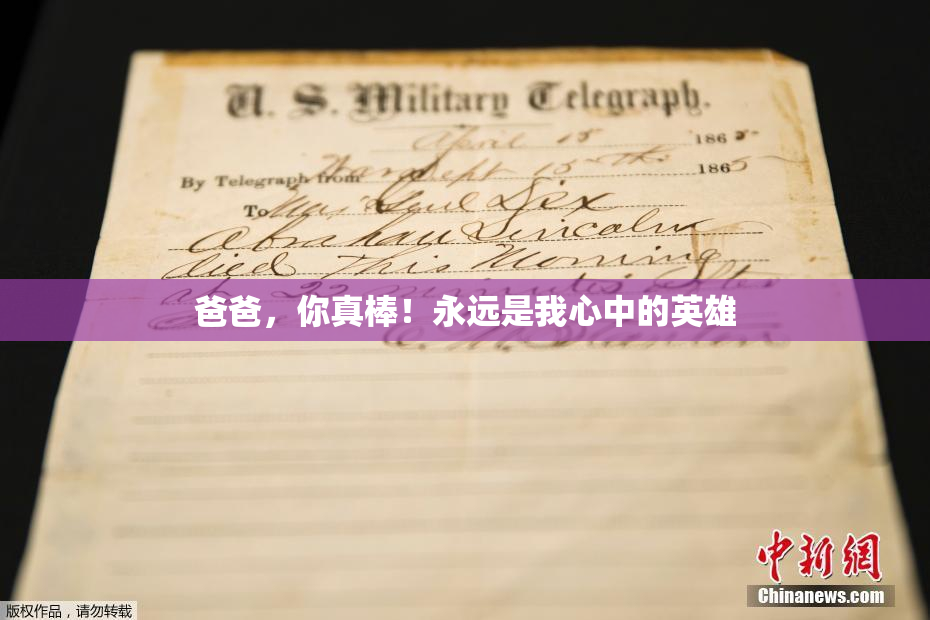 U. S. Military Telegraph.
April 15 1865-
By Telegraph from War Dept 15th 1865
To Maj Genl Dix
Abraham Lincoln
died This Morning
at 22 minutes after
爸爸，你真棒！永远是我心中的英雄
E. M. Stanton
中新网
Chinanews.com
版权作品，请勿转载